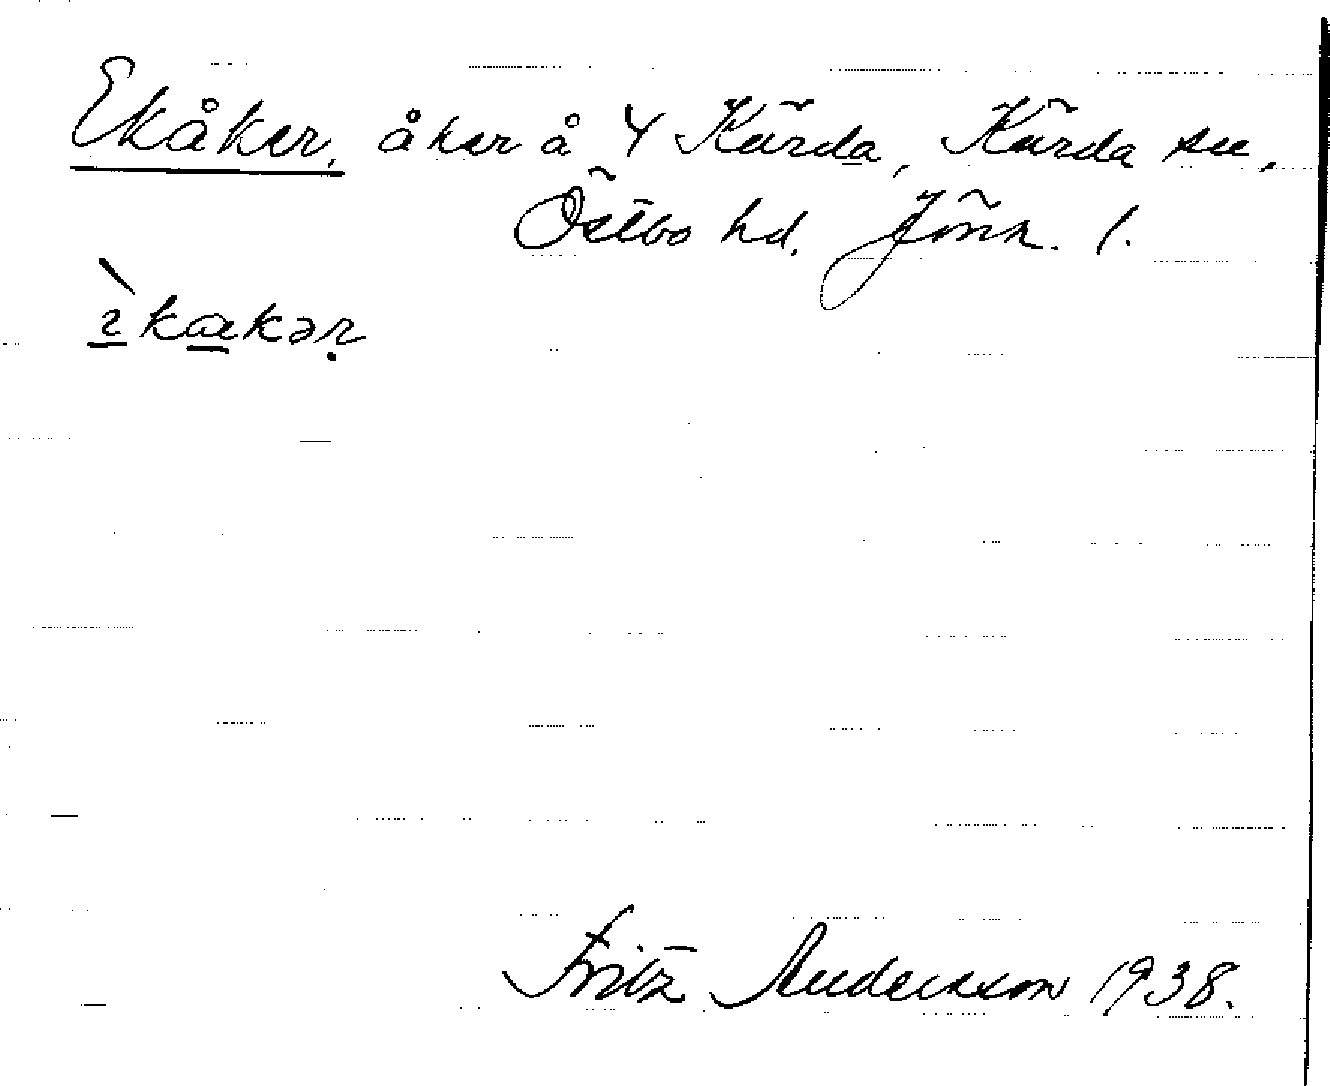 Ekåker, åker å 4 Kärda, Kärda sn,
Östbo hd. Jönk. l.
Fritz Andersson 1938.